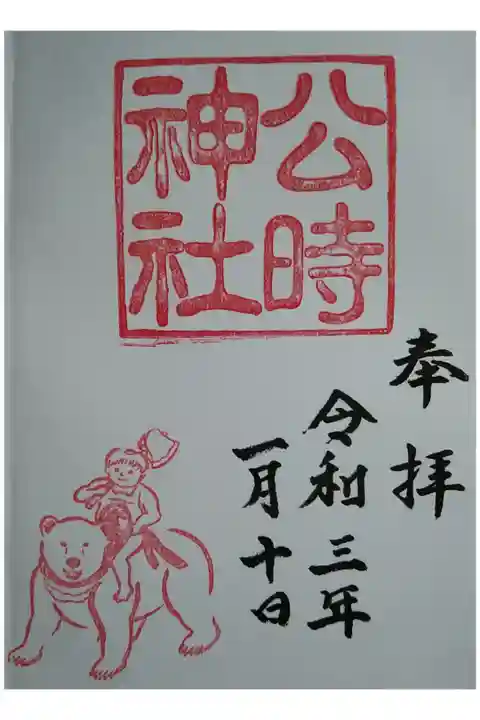 公時
神社
奉拝
令和三年
一月十日